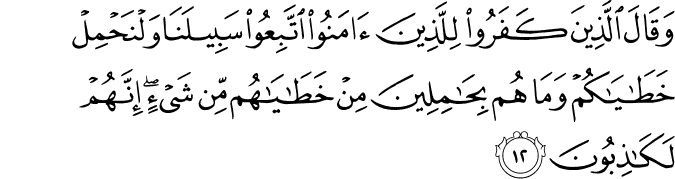 وَقَالَ ٱلَّذِينَ كَفَرُوا۟ لِلَّذِينَ ءَامَنُوا۟ ٱتَّبِعُوا۟ سَبِيلَنَا وَلْنَحْمِلْ
خَطَـٰيَـٰكُمْ وَمَا هُم بِحَـٰمِلِينَ مِنْ خَطَـٰيَـٰهُم مِّن شَىْءٍ ۖ إِنَّهُمْ
لَكَـٰذِبُونَ ١٢